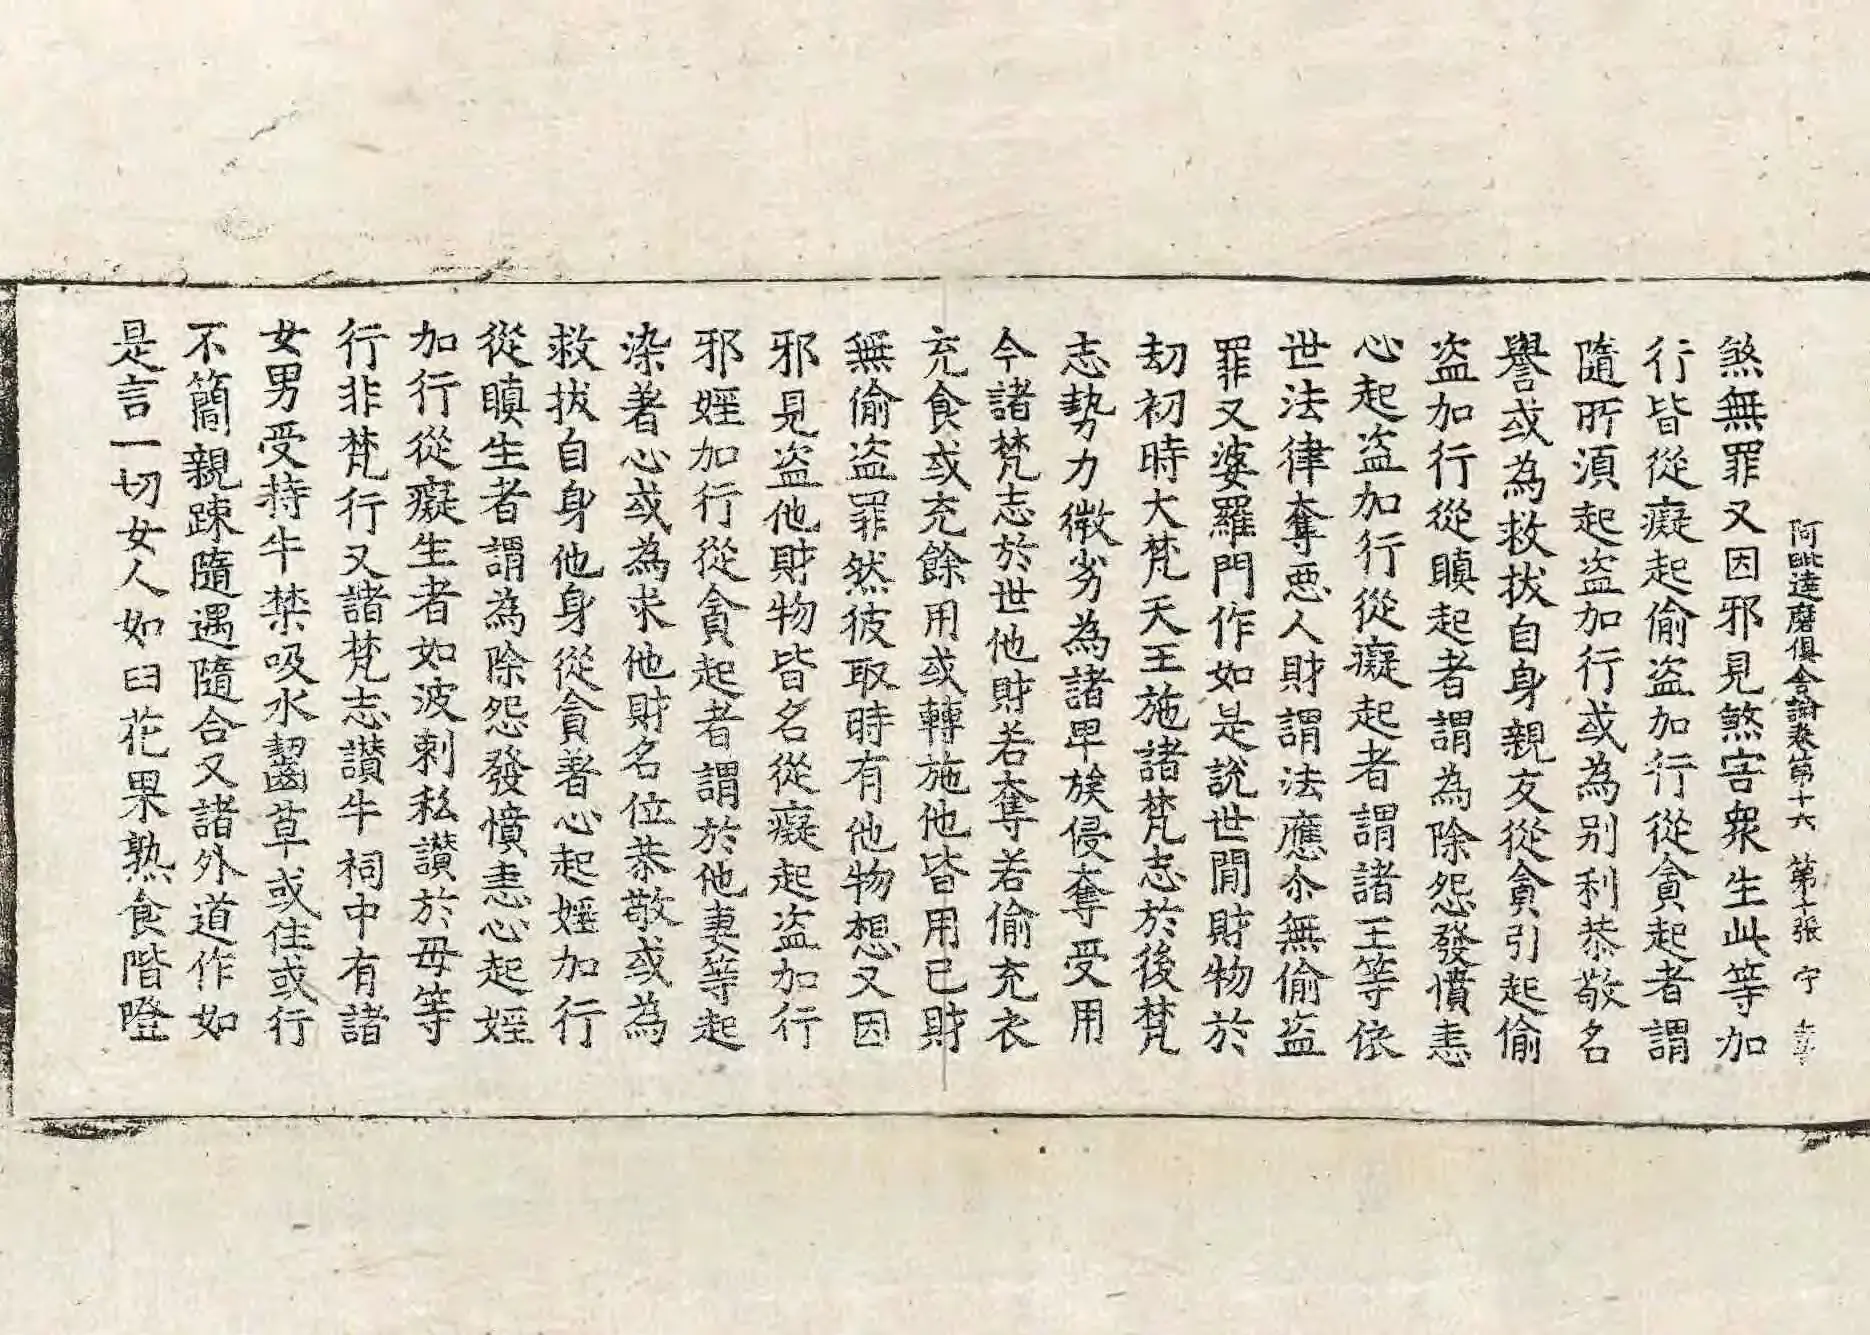 阿毗達磨俱舍論卷第十六 第十張 守
煞無罪又因邪見煞害衆生此等加
行皆從癡起偷盜加行從貪起者謂
隨所湏起盜加行或為別利恭敬名
譽或為救拔自身親友從貪引起偷
盜加行從瞋起者謂為除怨發憤恚
心起盜加行從癡起者謂諸王等依
世法律奪惡人財謂法應尒無偷盜
罪又婆羅門作如是說世間財物於
劫初時大梵天王施諸梵志於後梵
志勢力微劣為諸卑族侵奪受用
今諸梵志於世他財若奪若偷充衣
充食或充餘用或轉施他皆用己財
無偷盜罪然彼取時有他物想又因
邪見盜他財物皆名從癡起盜加行
邪婬加行從貪起者謂於他妻等起
染著心或為求他財名位恭敬或為
救拔自身他身從貪著心起婬加行
從瞋生者謂為除怨發憤恚心起婬
加行從癡生者如波剌私讃於母等
行非梵行又諸梵志讃牛祠中有諸
女男受持牛禁吸水齧草或住或行
不簡親踈隨遇隨合又諸外道作如
是言一切女人如臼花果熟食階隥